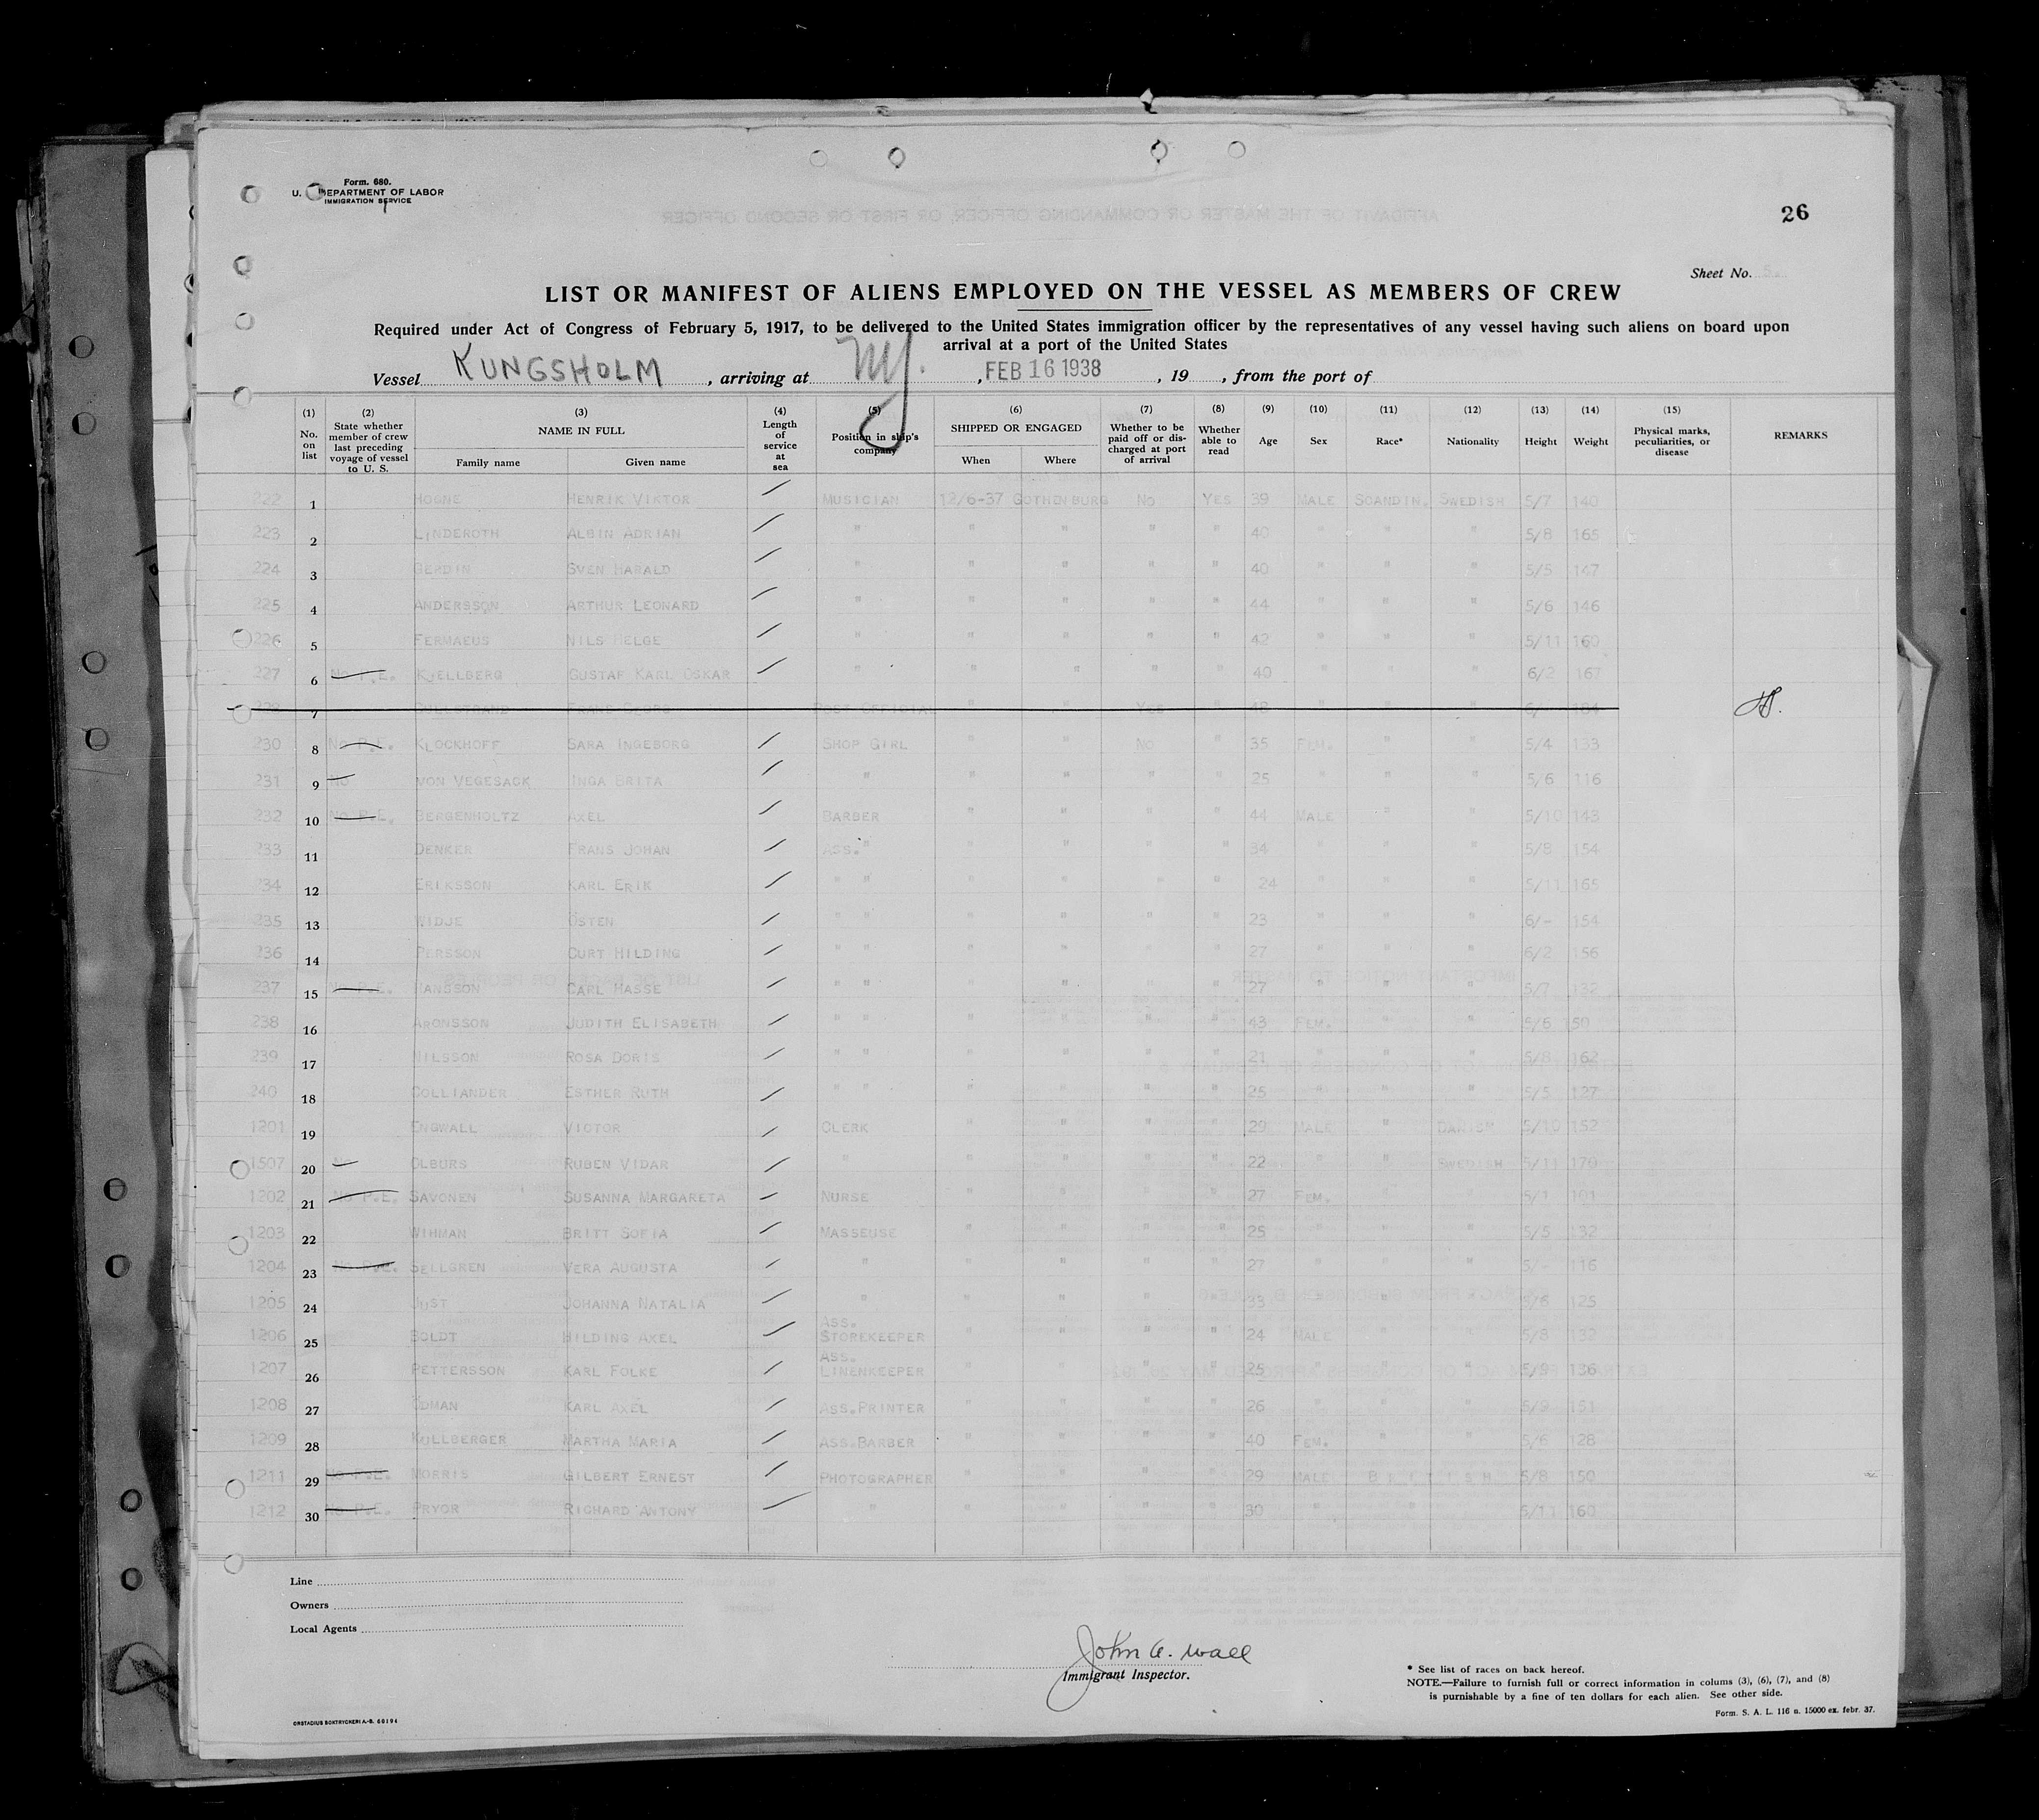 Form. 680.
U. DEPARTMENT OF LABOR
IMMIGRATION SERVICE
26
Sheet No.
LIST OR MANIFEST OF ALIENS EMPLOYED ON THE VESSEL AS MEMBERS OF CREW
Required under Act of Congress of February 5, 1917, to be delivered to the United States immigration officer by the representatives of any vessel having such aliens on board upon
arrival at a port of the United States
Vessel KUNGSHOLM , arriving at NY. , FEB 16 1938 , 19 , from the port of
(1) No. on list (2) State whether member of crew last preceding voyage of vessel to U. S. (3) NAME IN FULL Family name Given name (4) Length of service at sea (5) Position in ship's company (6) SHIPPED OR ENGAGED When Where (7) Whether to be paid off or discharged at port of arrival (8) Whether able to read (9) Age (10) Sex (11) Race* (12) Nationality (13) Height (14) Weight (15) Physical marks, peculiarities, or disease REMARKS
222 1 HENRIK VIKTOR MUSICIAN 12/6-37 GOTHENBURG NO YES 39 MALE SCANDIN. SWEDISH 5/7 140
223 2 LINDEROTH ALBIN ADRIAN " " " " " 40 " " " 5/8 165
224 3 GERDIN SVEN HARALD " " " " " 40 " " " 5/5 147
225 4 ANDERSSON ARTHUR LEONARD " " " " " 44 " " " 5/6 146
226 5 FERMAEUS NILS HELGE " " " " " 42 " " " 5/11 160
227 6 NO P.E. KJELLBERG GUSTAF KARL OSKAR " " " " " 40 " " " 6/2 167
7 POST OFFICIAL " " YES " 48 " " "
230 8 NO P.E. KLOCKHOFF SARA INGEBORG SHOP GIRL " " NO " 35 FEM. " " 5/4 133
231 9 NO VON VEGESACK INGA BRITA " " " " " 25 " " " 5/6 116
232 10 NO P.E. BERGENHOLTZ AXEL BARBER " " " " 44 MALE " " 5/10 143
233 11 DENKER FRANS JOHAN ASS. " " " " " 34 " " " 5/8 154
234 12 ERIKSSON KARL ERIK " " " " " " 24 " " " 5/11 165
235 13 WIDJE ÖSTEN " " " " " " 23 " " " 6/- 154
236 14 PERSSON CURT HILDING " " " " " " 27 " " " 6/2 156
237 15 NO P.E. HANSSON CARL HASSE " " " " " " 27 " " " 5/7 132
238 16 ARONSSON JUDITH ELISABETH " " " " " " 43 FEM. " " 5/6
239 17 NILSSON ROSA DORIS " " " " " " 21 " " " 5/8 162
240 18 COLLIANDER ESTHER RUTH " " " " " " 25 " " " 5/5 127
1201 19 ENGWALL VICTOR CLERK " " " " 29 MALE " DANISH 5/10 152
1507 20 NO OLBURS RUBEN VIDAR " " " " " 22 " " SWEDISH 5/11 170
1202 21 NO P.E. SAVONEN SUSANNA MARGARETA NURSE " " " " 27 FEM. " " 5/1 101
1203 22 WIHMAN BRITT SOFIA MASSEUSE " " " " 25 " " " 5/5 132
1204 23 NO P.E. SELLGREN VERA AUGUSTA " " " " " 27 " " " 5/- 116
1205 24 JUST JOHANNA NATALIA " " " " " 33 " " " 5/6 125
1206 25 BOLDT HILDING AXEL ASS. STOREKEEPER " " " " 24 MALE " " 5/8 132
1207 26 PETTERSSON KARL FOLKE ASS. LINENKEEPER " " " " 25 " " " 5/9 136
1208 27 ÖDMAN KARL AXEL ASS.PRINTER " " " " 26 " " " 5/9 151
1209 28 KULLBERGER MARTHA MARIA ASS.BARBER " " " " 40 FEM. " " 5/6 128
1211 29 NO P.E. MORRIS GILBERT ERNEST PHOTOGRAPHER " " " " 29 MALE BRITISH 5/8 150
1212 30 NO P.E. PRYOR RICHARD ANTONY " " " " " 30 " " 5/11 160
Line
Owners
Local Agents
John A. Wall
Immigrant Inspector.
* See list of races on back hereof.
NOTE.—Failure to furnish full or correct information in colums (3), (6), (7), and (8)
is punishable by a fine of ten dollars for each alien. See other side.
ORSTADIUS BOKTRYCKERI A.-B. 60194
Form. S. A. L. 116 a. 15000 ex. febr. 37.